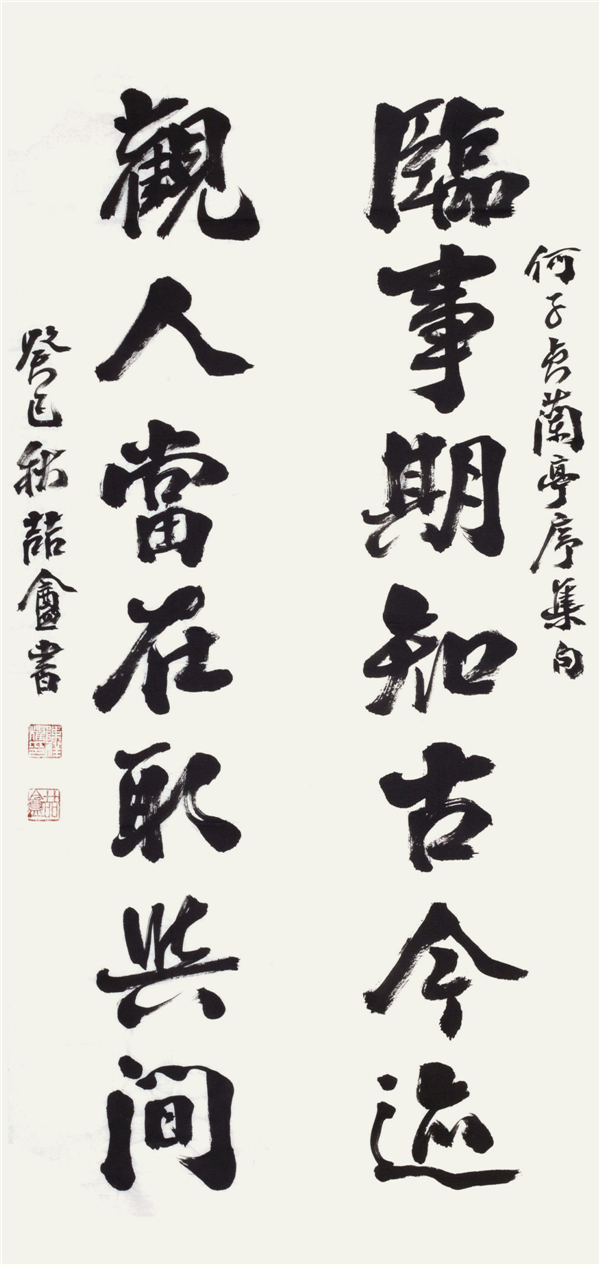 何子貞蘭亭序集句
臨事期知古今迹
觀人當在取與間
癸巳秋喆盦書